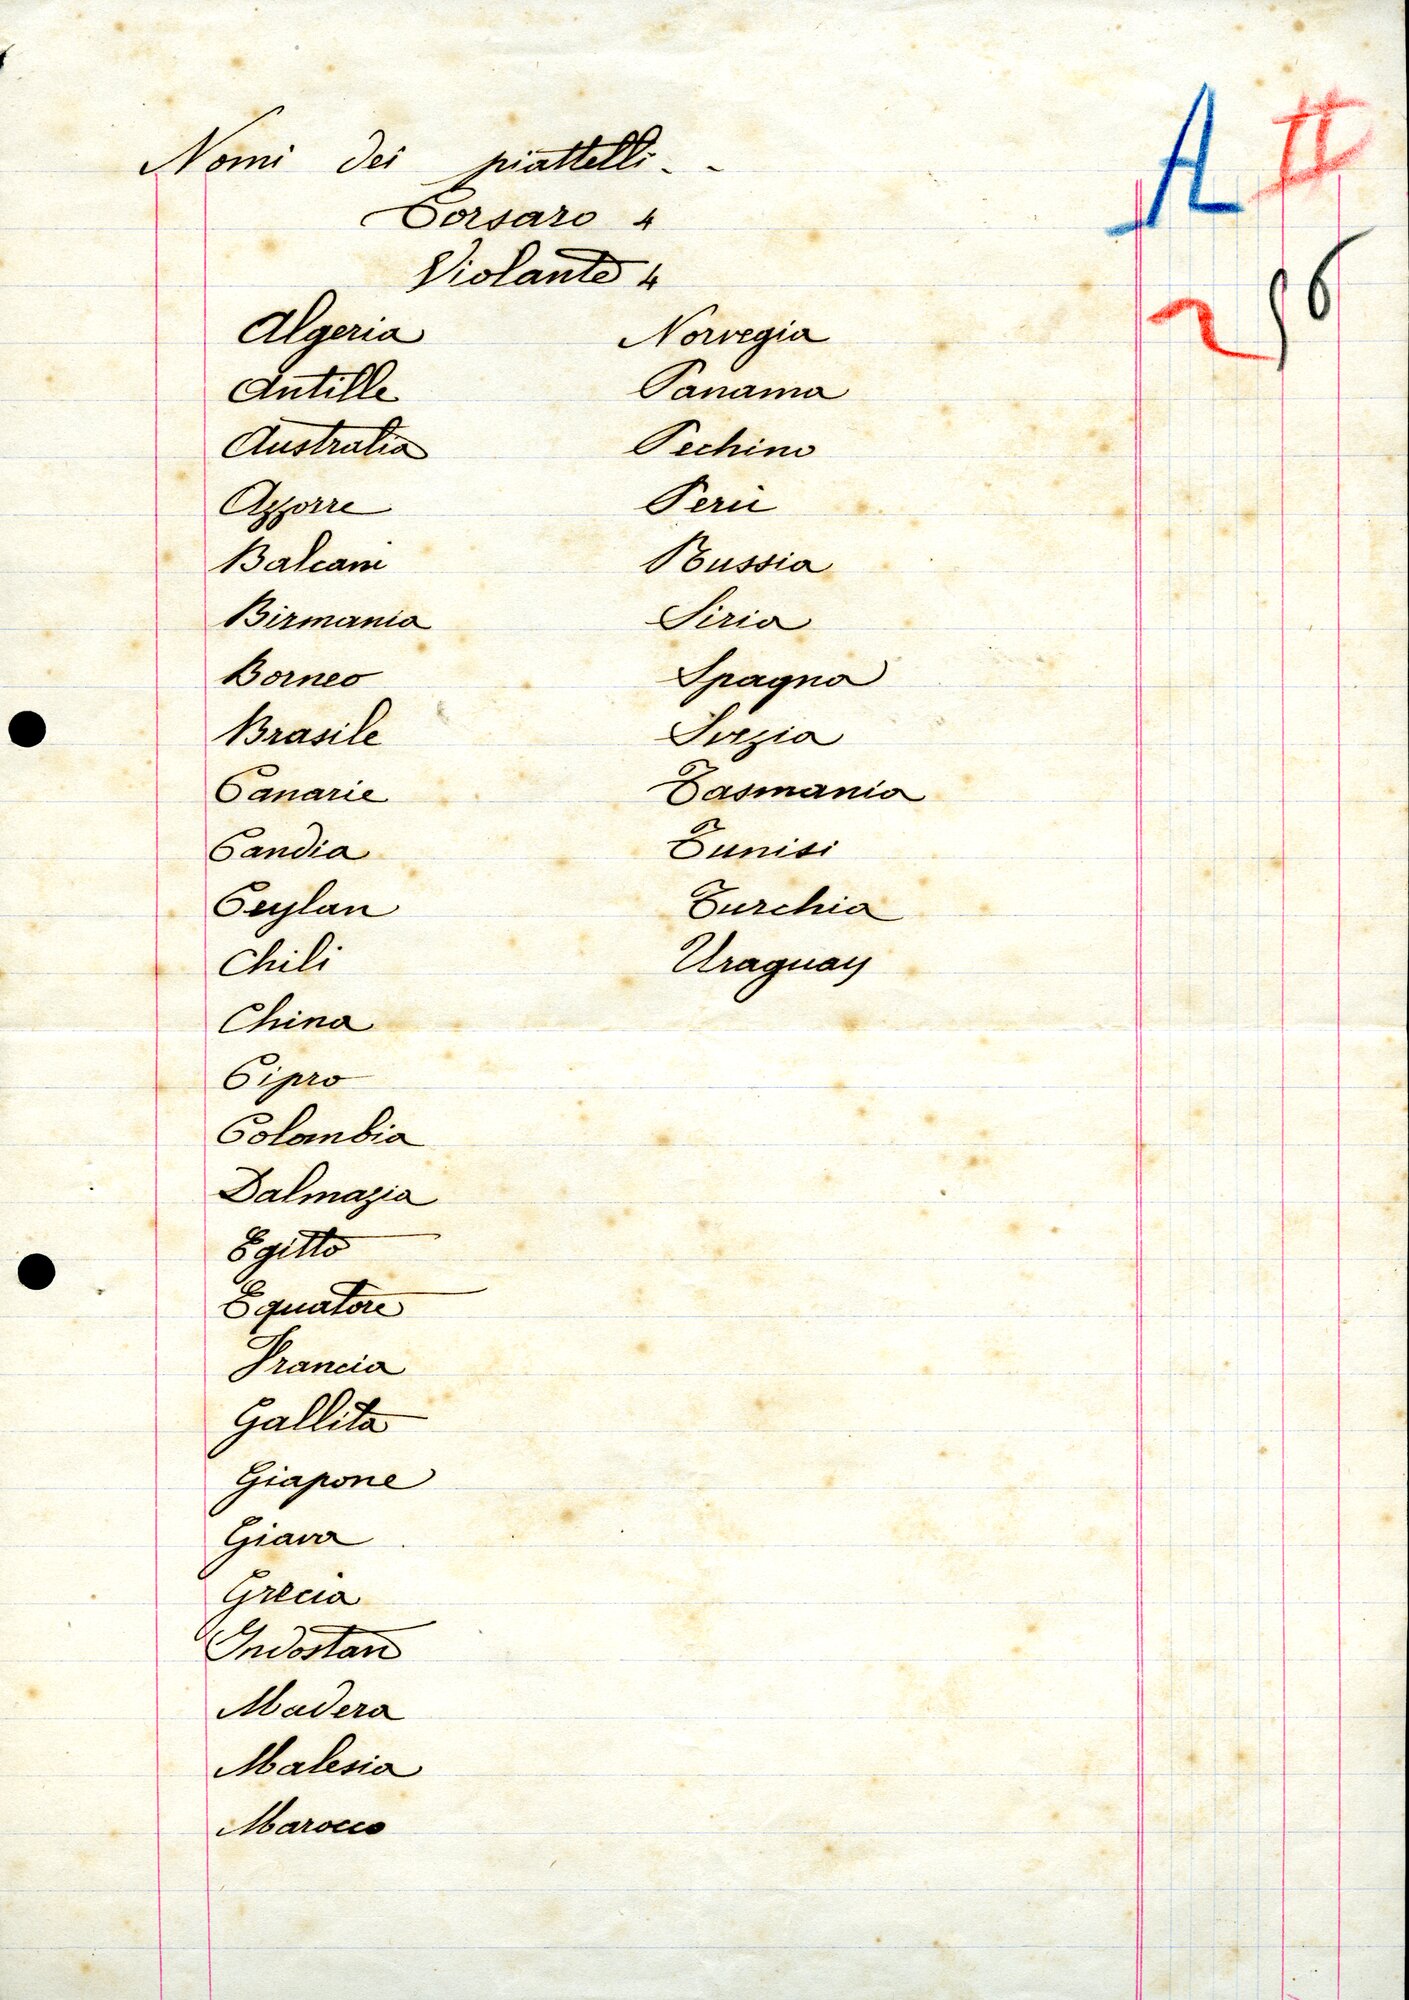 Nomi dei piattelli - -
Corsaro 4
Violante 4
Algeria
Antille
Australia
Azzorre
Balcani
Birmania
Borneo
Brasile
Canarie
Candia
Ceylan
Chili
China
Cipro
Colombia
Dalmazia
Egitto
Equatore
Francia
Gallita
Giapone
Giava
Grecia
Indostan
Madera
Malesia
Marocco
Norvegia
Panama
Pechino
Perù
Russia
Siria
Spagna
Svezia
Tasmania
Tunisi
Turchia
Uraguay
A II
56